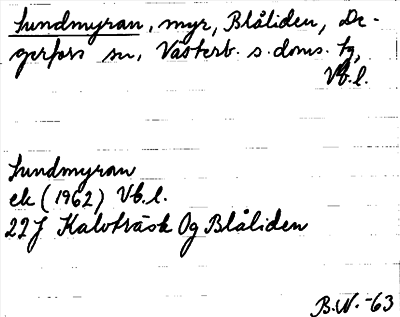 Sundmyran, myr, Blåliden, De-
gerfors sn, Västerb. s. doms. tg,
Vb. l.
Sundmyran
ek (1962) Vb. l.
22J Kalvträsk Og Blåliden
B.N. -63